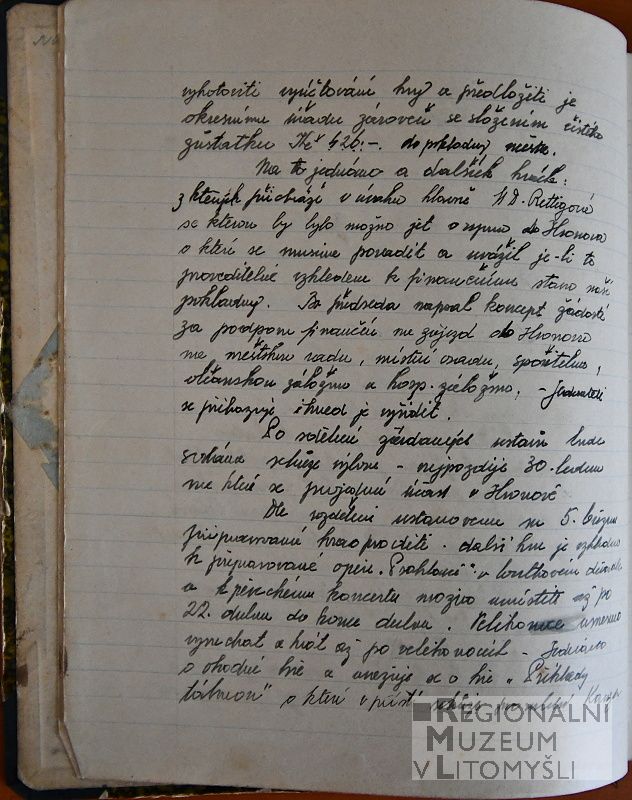 vyhotoviti vyúčtování hry a předložiti je
okresnímu úřadu zároveň se složením čistého
zůstatku Kč 426.- do pokladny měst.
Na to jednáno a dalších hrách:
z kterých přichází v úvahu hlavně M D. Rettigové
se kterou by bylo možno jet o srpnu do Hronova
o které se musíme poradit a uvážit je-li to
proveditelné vzhledem k finančnímu stavu naší
pokladny. Br předseda napsal koncept žádostí
za podporu finanční na zájezd do Hronova
na městskou radu, místní osadu, spořitelnu,
občanskou záložnu a hosp. záložnu, - Jednateli
se přikazuje ihned je vyřídit.
Po sdělení žádaných ústavů bude
svolána schůze výboru - nejpozději 30. ledna
na které se projedná účast v Hronově
Dle rozdělení ustanovena na 5. března
připravované hra prováděti. další hra je vzhledem
k připravované opeře "Prohlaní" v loutkovém divadle
a k pěveckému koncertu možno umístiti až po
22. dubnu do konce dubna. Velikonoce
vynechat a hrát až po velikonocích - Jednáno
o vhodné hře a uvažuje se o hře "Příklady
táhnou" o které v příští schůzi
REGIONÁLNÍ
MUZEUM
V LITOMYŠLI